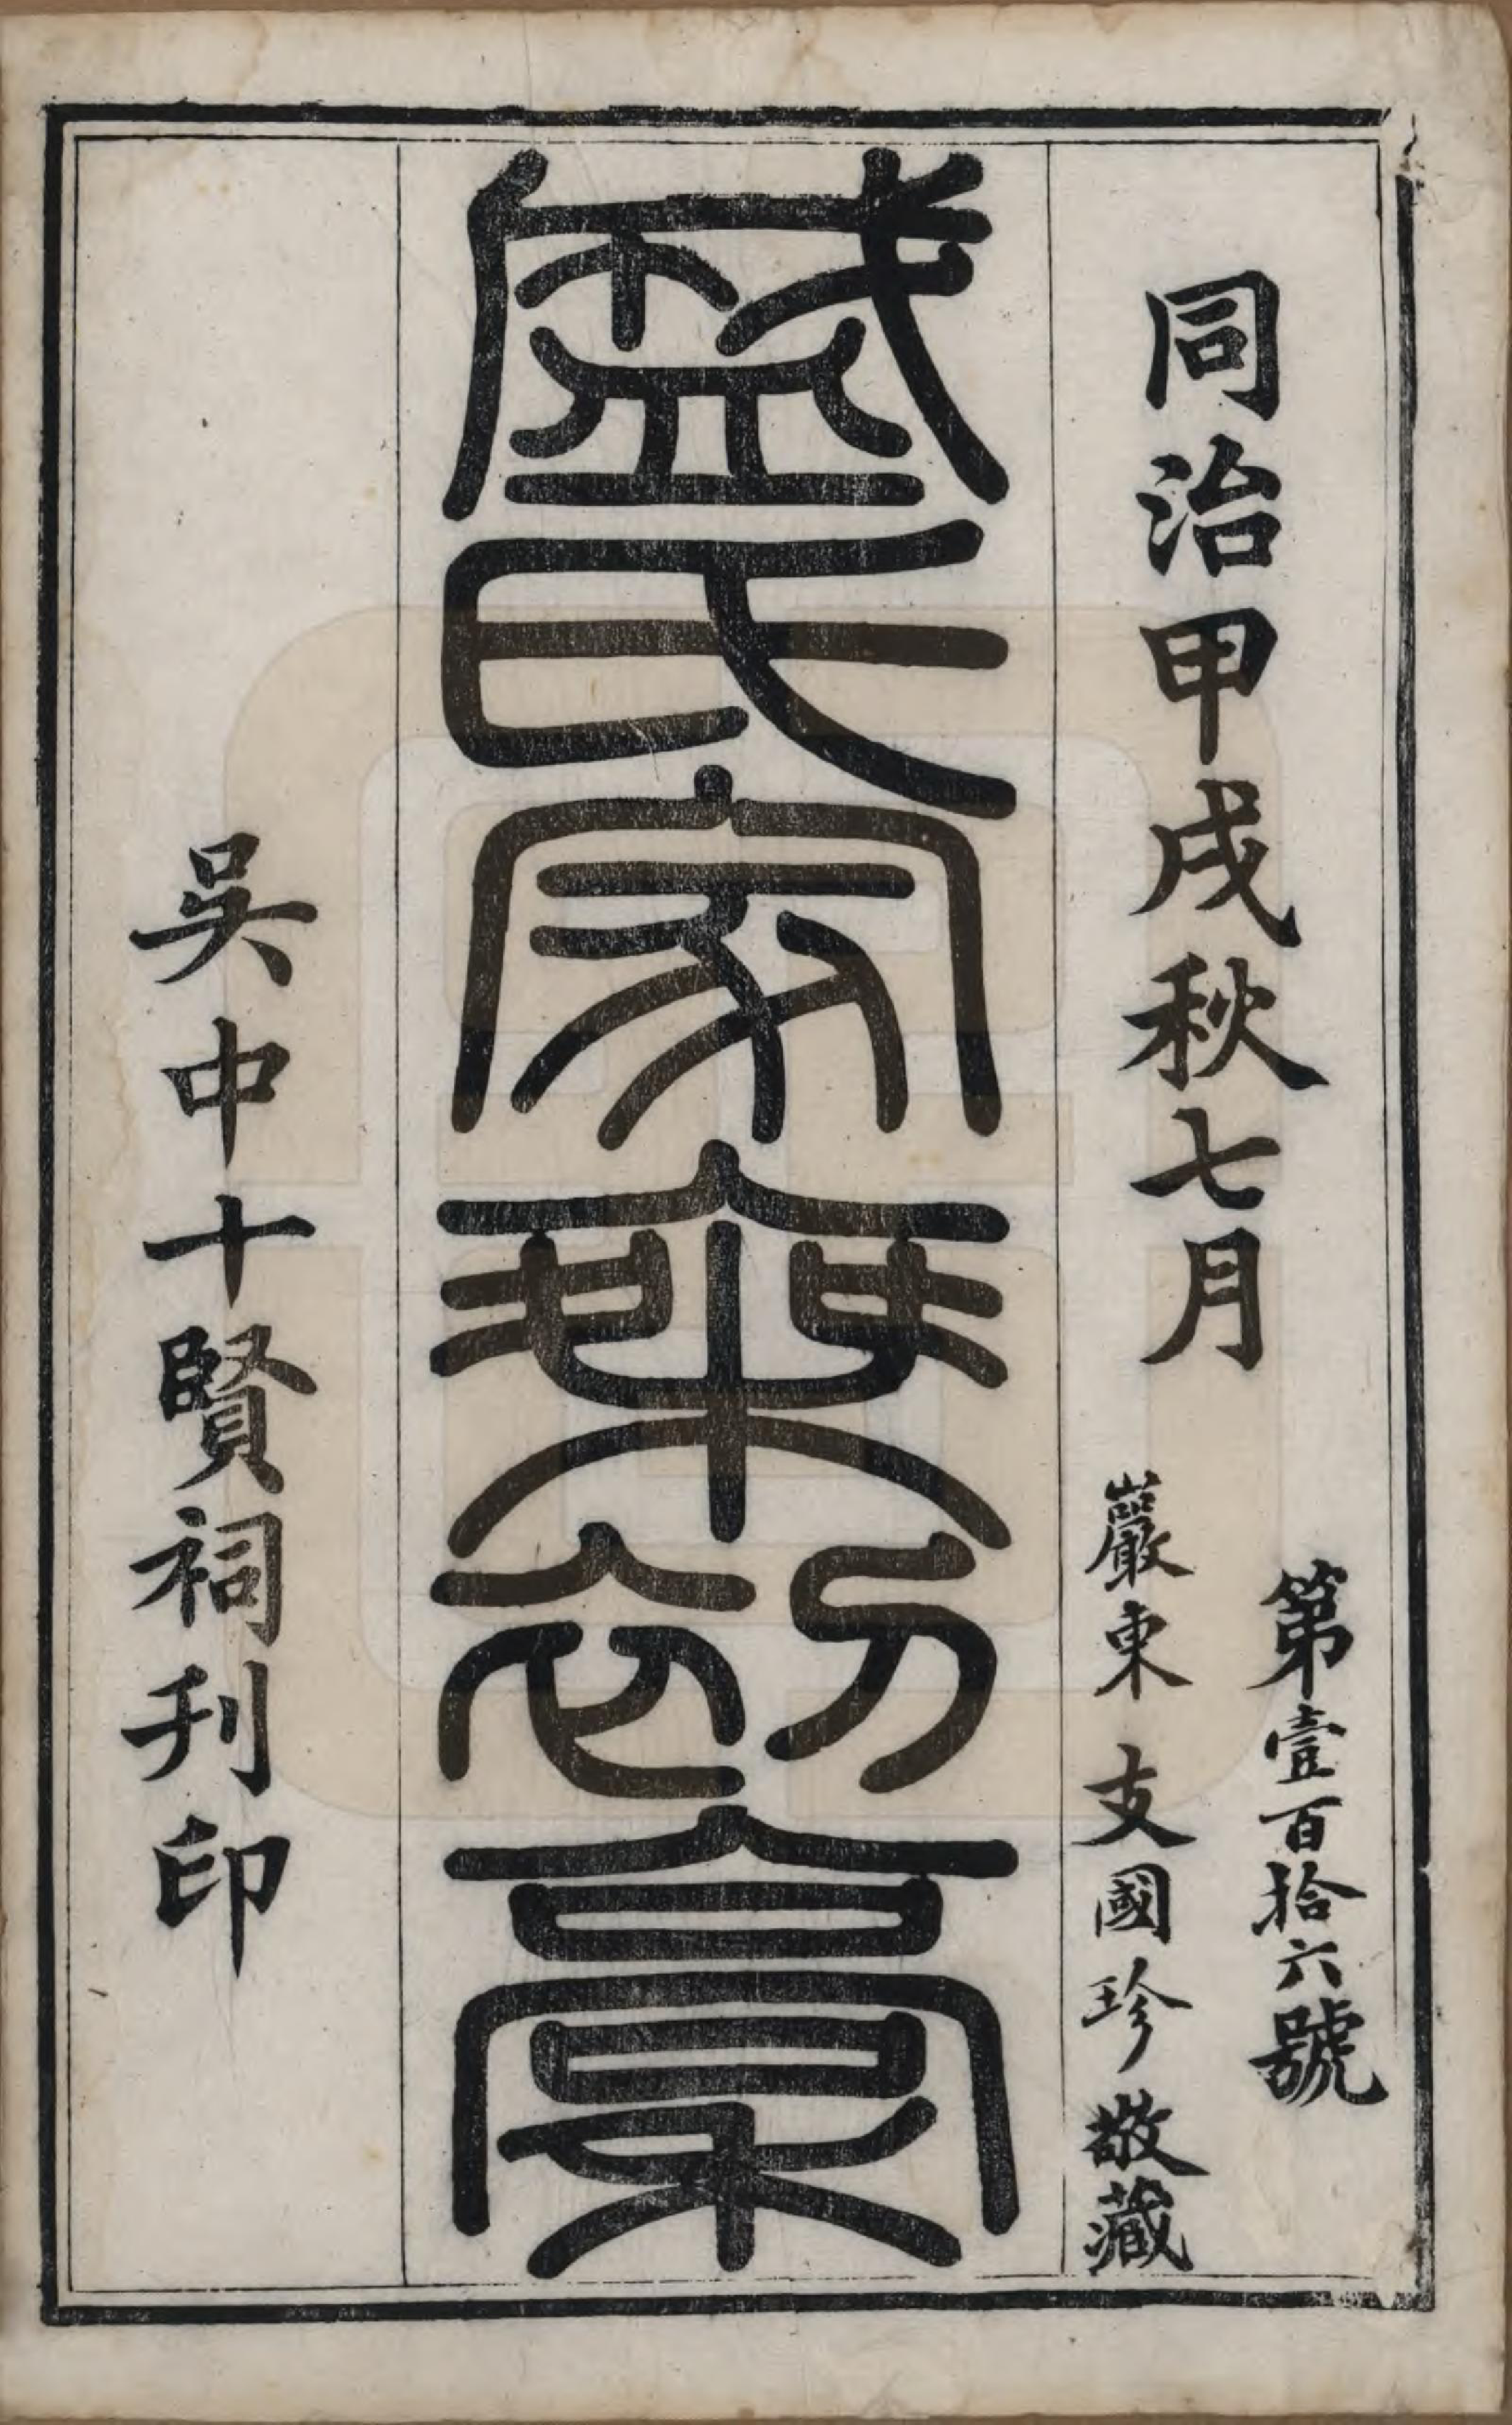 同治甲戌秋七月
第壹百拾六號
嚴東支國珍敬藏
盛氏家乘初稾
吳中十賢祠刋印